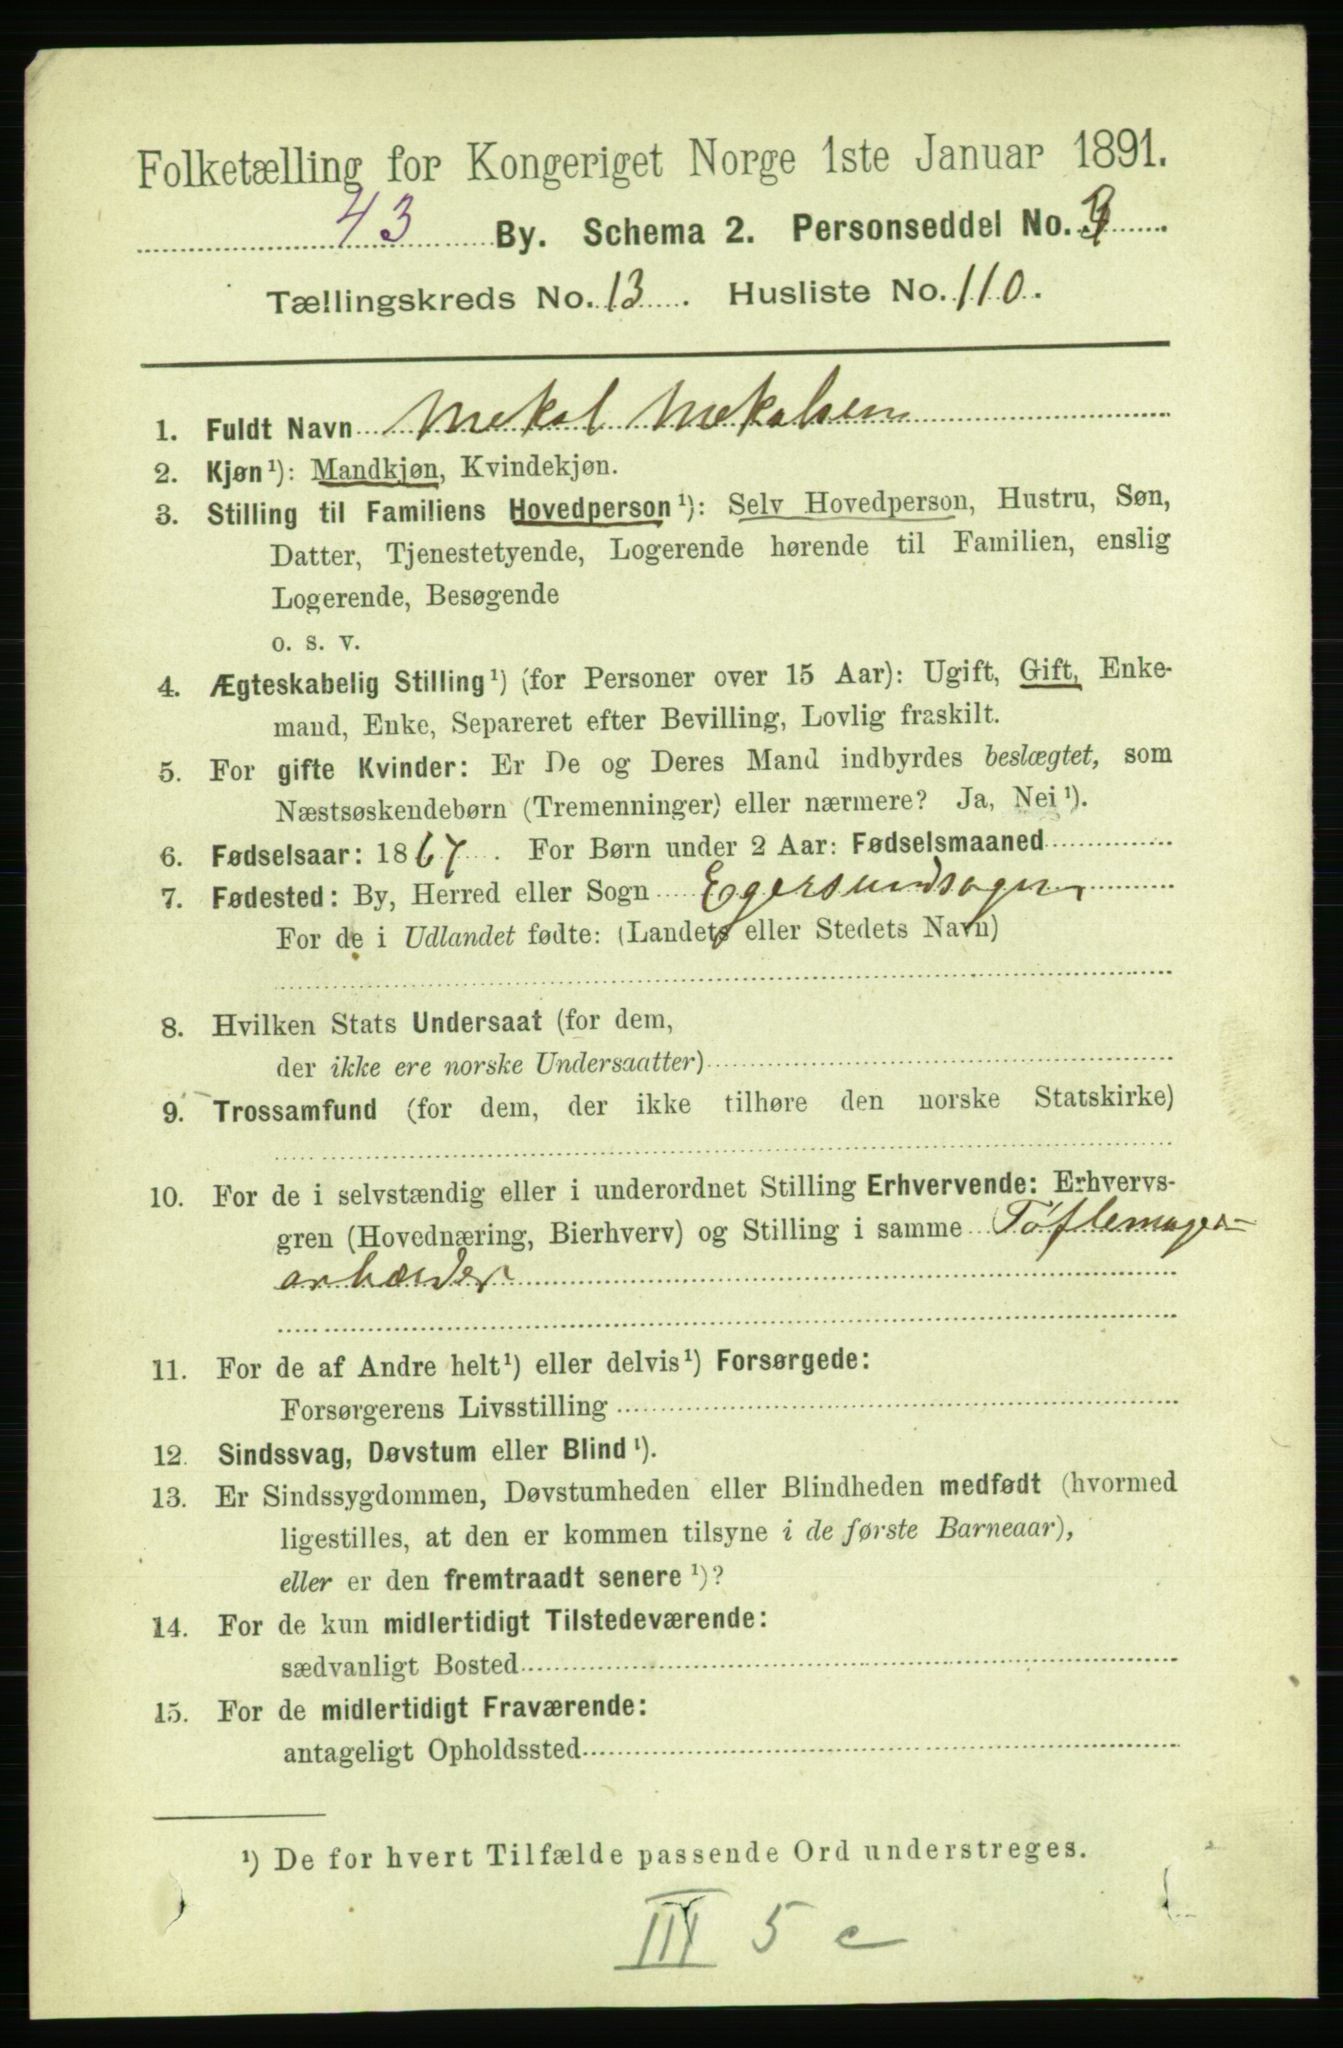 Folketælling for Kongeriget Norge 1ste Januar 1891.
43 By. Schema 2. Personseddel No.
Tællingskreds No. 13. Husliste No. 110.
1. Fuldt Navn Mekal Mekalsen
2. Kjøn ¹): Mandkjøn, Kvindekjøn.
3. Stilling til Familiens Hovedperson ¹): Selv Hovedperson, Hustru, Søn,
Datter, Tjenestetyende, Logerende hørende til Familien, enslig
Logerende, Besøgende
o. s. v.
4. Ægteskabelig Stilling ¹) (for Personer over 15 Aar): Ugift, Gift, Enke-
mand, Enke, Separeret efter Bevilling, Lovlig fraskilt.
5. For gifte Kvinder: Er De og Deres Mand indbyrdes beslægtet, som
Næstsøskendebørn (Tremenninger) eller nærmere? Ja, Nei ¹).
6. Fødselsaar: 1867. For Børn under 2 Aar: Fødselsmaaned
7. Fødested: By, Herred eller Sogn Egersundsogn
For de i Udlandet fødte: (Landets eller Stedets Navn)
8. Hvilken Stats Undersaat (for dem,
der ikke ere norske Undersaatter)
9. Trossamfund (for dem, der ikke tilhøre den norske Statskirke)
10. For de i selvstændig eller i underordnet Stilling Erhvervende: Erhvervs-
gren (Hovednæring, Bierhverv) og Stilling i samme Tøflemager-
arbæider
11. For de af Andre helt ¹) eller delvis ¹) Forsørgede:
Forsørgerens Livsstilling
12. Sindssvag, Døvstum eller Blind ¹).
13. Er Sindssygdommen, Døvstumheden eller Blindheden medfødt (hvormed
ligestilles, at den er kommen tilsyne i de første Barneaar),
eller er den fremtraadt senere ¹)?
14. For de kun midlertidigt Tilstedeværende:
sædvanligt Bosted
15. For de midlertidigt Fraværende:
antageligt Opholdssted
¹) De for hvert Tilfælde passende Ord understreges.
III 5 c